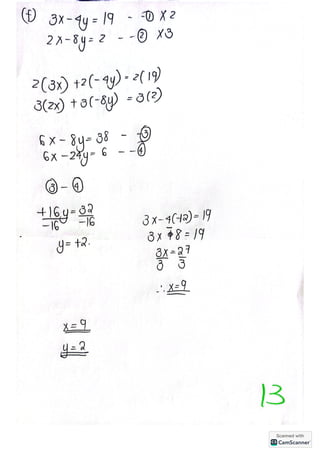 (f) 3x-4y=19 - -① x2
2x-8y=2 - -② x3
2(3x)+2(-4y)=2(19)
3(2x)+3(-8y) =3(2)
6x-8y=38 - -③
6x-24y=6 - -④
③-④
+16y=32
-16 -16
y=+2.
3x-4(+2)=19
3x-8=19
3x=27
3 3
∴ x=9
x=9
y=2
13
Scanned with
CS CamScanner